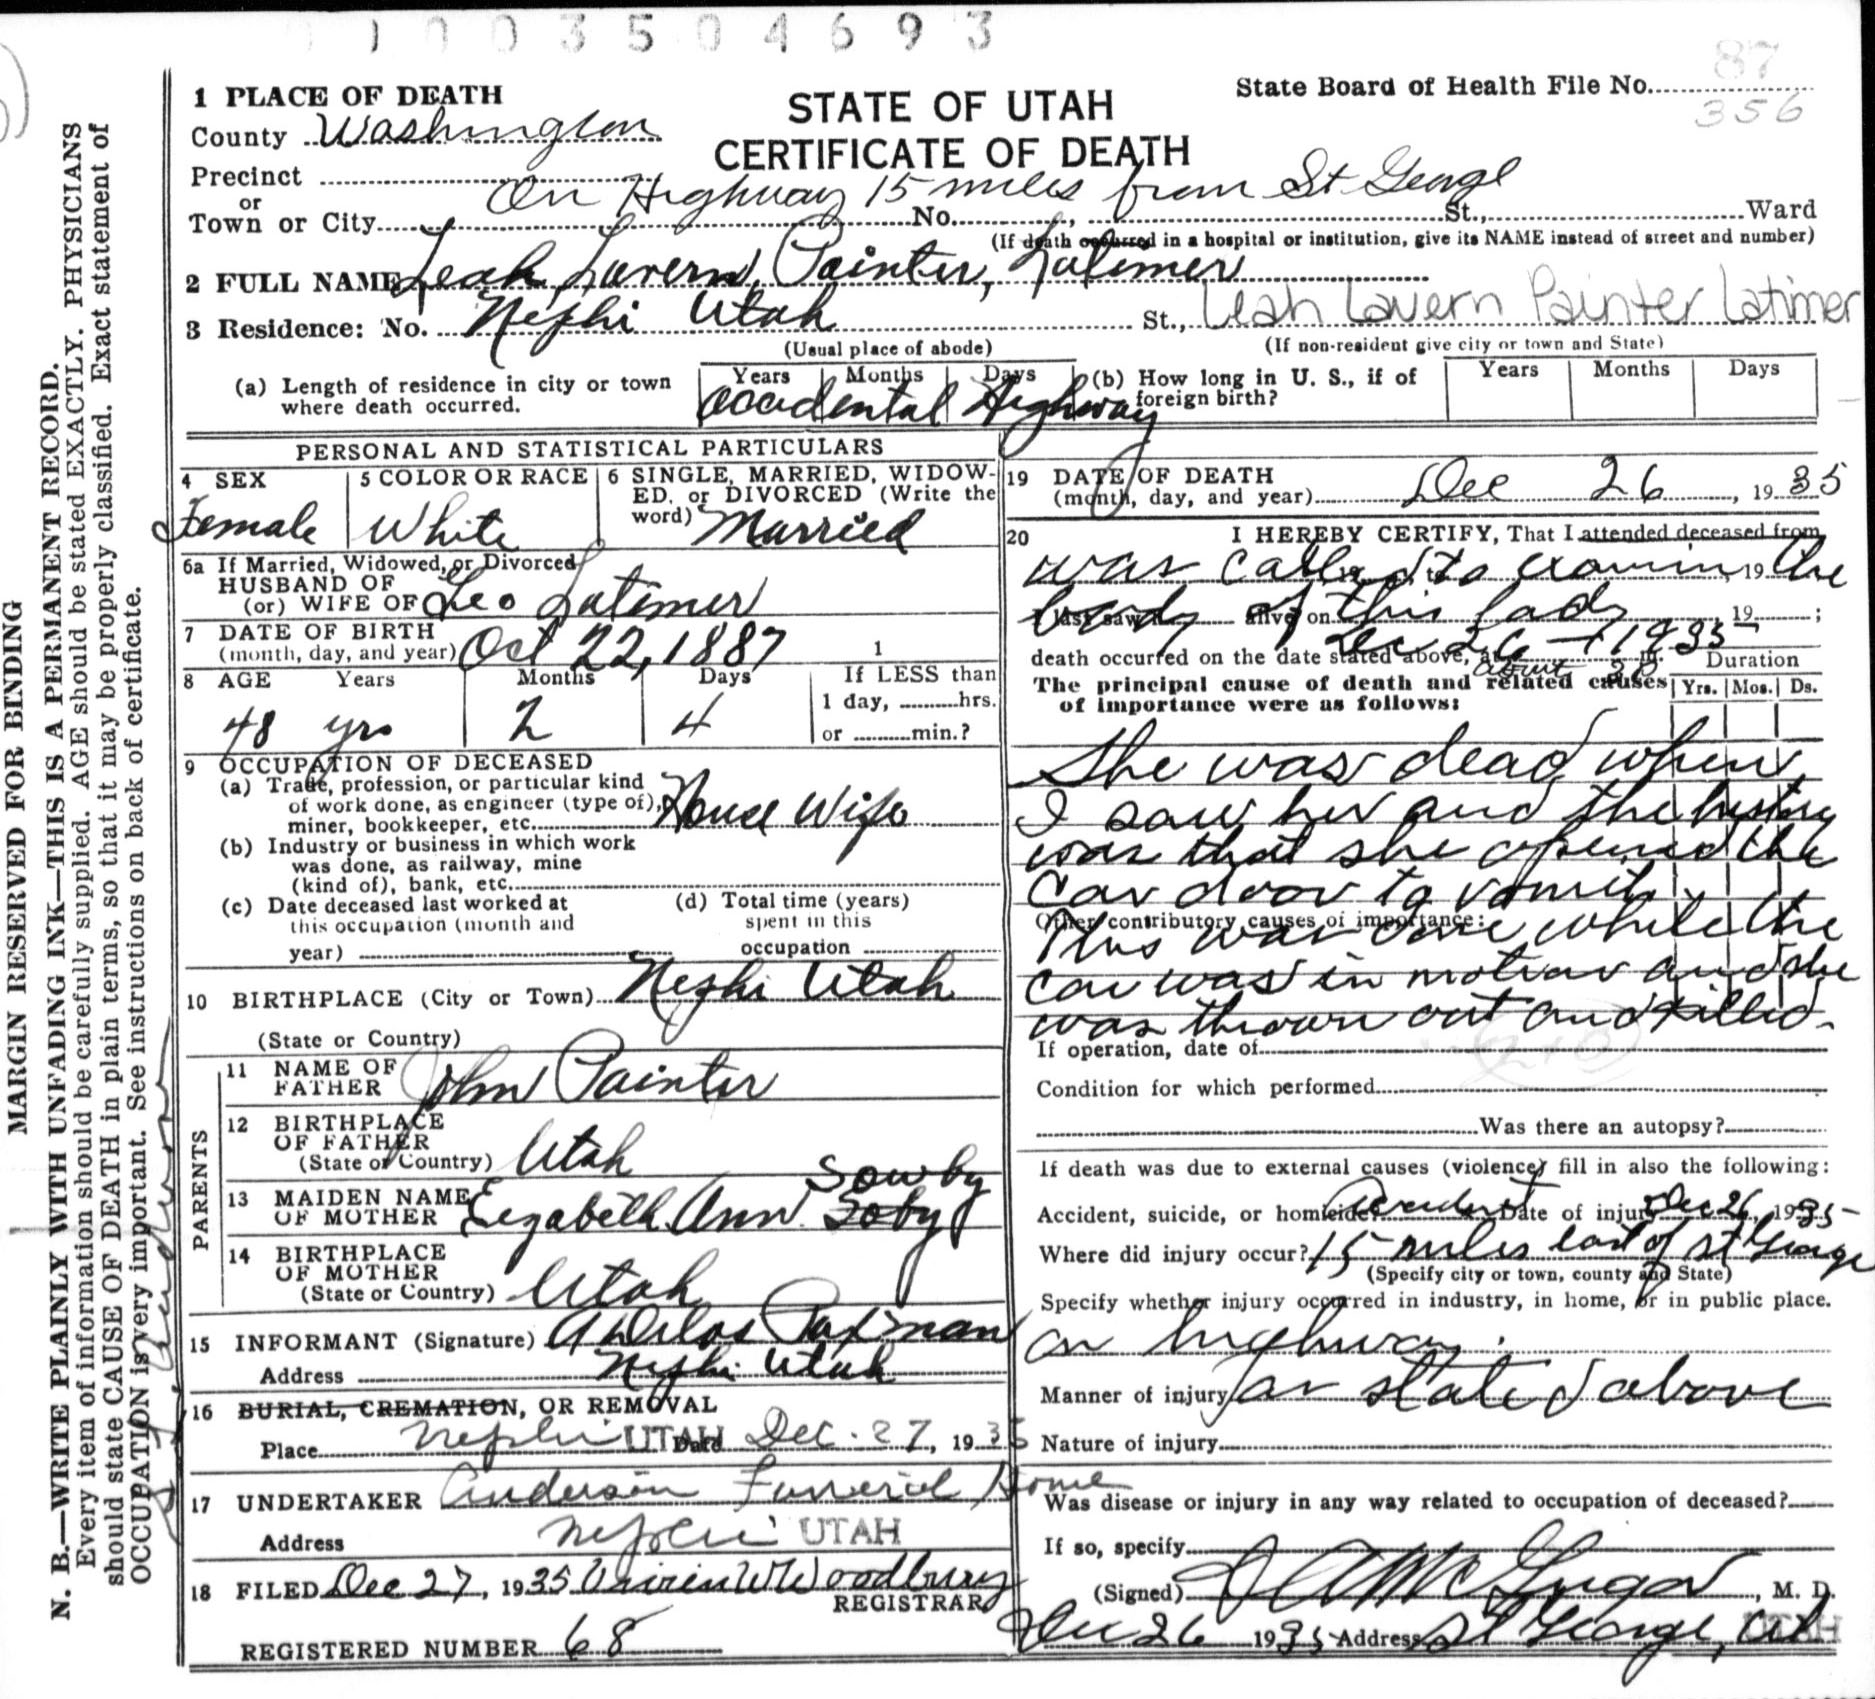 1003504693
1 PLACE OF DEATH
STATE OF UTAH
CERTIFICATE OF DEATH
State Board of Health File No. 87
356
County Washington
Precinct
or
Town or City On Highway 15 miles from St George No. St., Ward
(If death occurred in a hospital or institution, give its NAME instead of street and number)
2 FULL NAME Leah Lavern Painter, Latimer
3 Residence: No. Nephi Utah St., Leah Lavern Painter Latimer
(Usual place of abode) (If non-resident give city or town and State)
(a) Length of residence in city or town where death occurred. Years Months Days
accidental Highway
(b) How long in U. S., if of foreign birth? Years Months Days
PERSONAL AND STATISTICAL PARTICULARS
4 SEX
Female
5 COLOR OR RACE
White
6 SINGLE, MARRIED, WIDOW-
ED, or DIVORCED (Write the
word) Married
6a If Married, Widowed, or Divorced
HUSBAND OF
(or) WIFE OF Leo Latimer
7 DATE OF BIRTH
(month, day, and year) Oct 22, 1887 1
8 AGE Years Months Days If LESS than
1 day, hrs.
or min.?
48 yrs 2 4
9 OCCUPATION OF DECEASED
(a) Trade, profession, or particular kind
of work done, as engineer (type of),
miner, bookkeeper, etc. House Wife
(b) Industry or business in which work
was done, as railway, mine
(kind of), bank, etc.
(c) Date deceased last worked at
this occupation (month and
year)
(d) Total time (years)
spent in this
occupation
10 BIRTHPLACE (City or Town) Nephi Utah
(State or Country)
PARENTS
11 NAME OF
FATHER John Painter
12 BIRTHPLACE
OF FATHER
(State or Country) Utah
13 MAIDEN NAME
OF MOTHER Elizabeth Ann Soby
Sowby
14 BIRTHPLACE
OF MOTHER
(State or Country) Utah
15 INFORMANT (Signature) Paxman
Address Nephi Utah
16 BURIAL, CREMATION, OR REMOVAL
Place Nephi UTAH Date Dec. 27, 1935
17 UNDERTAKER Anderson Funeral Home
Address Nephi UTAH
18 FILED Dec 27, 1935 Woodbury
REGISTRAR
REGISTERED NUMBER 68
19 DATE OF DEATH
(month, day, and year) Dec 26, 1935
20 I HEREBY CERTIFY, That I attended deceased from
was called to examin the
, 19
I last saw h alive on , 19 ;
body of this lady
Dec 26 - 1935
death occurred on the date stated above, at about m.
The principal cause of death and related causes
of importance were as follows:
Duration
Yrs. Mos. Ds.
She was dead when
I saw her and the history
was that she opened the
car door to vomit.
Other contributory causes of importance:
This was done while the
car was in motion and she
was thrown out and killed.
If operation, date of
Condition for which performed
Was there an autopsy?
If death was due to external causes (violence) fill in also the following:
Accident, suicide, or homicide? Accident Date of injury Dec 26, 1935
Where did injury occur? 15 miles east of St George
(Specify city or town, county and State)
Specify whether injury occurred in industry, in home, or in public place.
on highway.
Manner of injury as stated above
Nature of injury
Was disease or injury in any way related to occupation of deceased?
If so, specify
(Signed) McGregor, M. D.
Dec 26 1935 Address St George, Ut UTAH
MARGIN RESERVED FOR BINDING
N. B.—WRITE PLAINLY WITH UNFADING INK—THIS IS A PERMANENT RECORD.
Every item of information should be carefully supplied. AGE should be stated EXACTLY. PHYSICIANS
should state CAUSE OF DEATH in plain terms, so that it may be properly classified. Exact statement of
OCCUPATION is very important. See instructions on back of certificate.